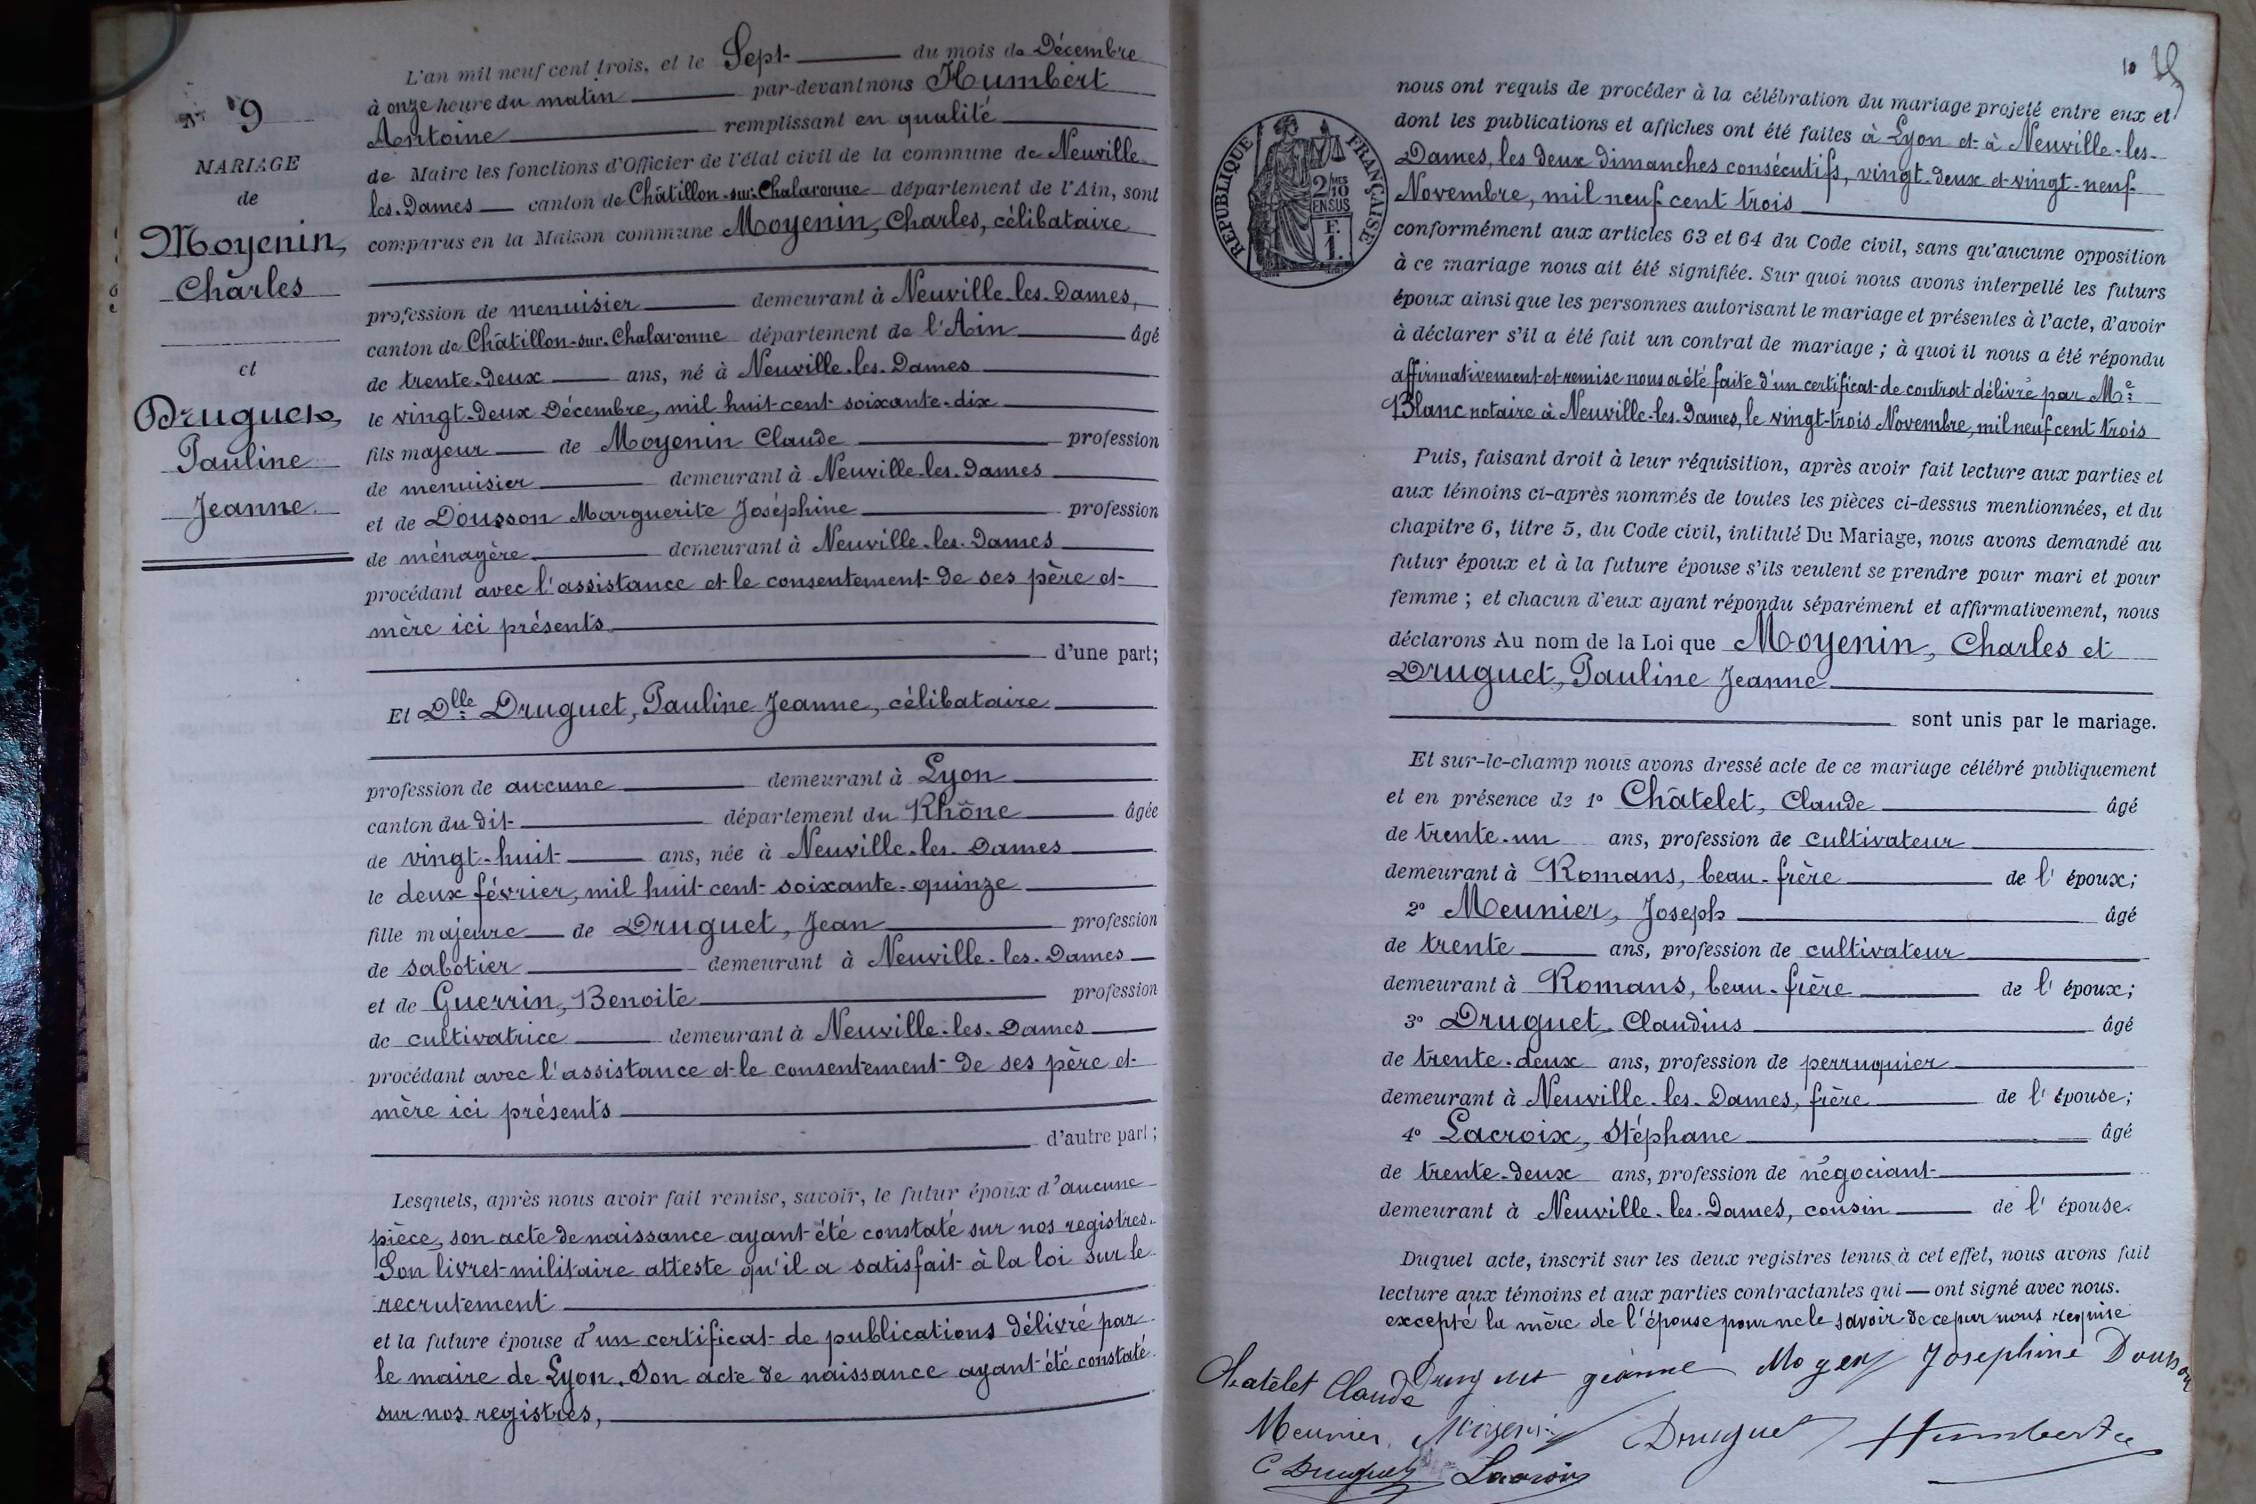 N° 9
MARIAGE
de
Moyenin,
Charles
et
Druguet,
Pauline
Jeanne
L'an mil neuf cent trois, et le Sept du mois de Décembre
à onze heure du matin par-devant nous Humbert
Antoine remplissant en qualité
de Maire les fonctions d'Officier de l'état civil de la commune de Neuville
les-Dames canton de Châtillon-sur-Chalaronne département de l'Ain, sont
comparus en la Maison commune Moyenin, Charles, célibataire
profession de menuisier demeurant à Neuville-les-Dames,
canton de Châtillon-sur-Chalaronne département de l'Ain âgé
de trente-deux ans, né à Neuville-les-Dames
le vingt-deux Décembre, mil huit cent soixante-dix
fils majeur de Moyenin Claude profession
de menuisier demeurant à Neuville-les-Dames
et de Dousson Marguerite Joséphine profession
de ménagère demeurant à Neuville-les-Dames
procédant avec l'assistance et le consentement de ses père et
mère ici présents
d'une part;
Et Dlle Druguet, Pauline Jeanne, célibataire
profession de aucune demeurant à Lyon
canton du dit département du Rhône âgée
de vingt-huit ans, née à Neuville-les-Dames
le deux février, mil huit cent soixante-quinze
fille majeure de Druguet, Jean profession
de sabotier demeurant à Neuville-les-Dames
et de Guerrin, Benoite profession
de cultivatrice demeurant à Neuville-les-Dames
procédant avec l'assistance et le consentement de ses père et
mère ici présents
d'autre part;
Lesquels, après nous avoir fait remise, savoir, le futur époux d'aucune
pièce, son acte de naissance ayant été constaté sur nos registres.
Son livret militaire atteste qu'il a satisfait à la loi sur le
recrutement
et la future épouse d'un certificat de publications délivré par
le maire de Lyon. Son acte de naissance ayant été constaté
sur nos registres,
10
RÉPUBLIQUE FRANÇAISE
2 MES
10
EN SUS
F.
1.
nous ont requis de procéder à la célébration du mariage projeté entre eux et
dont les publications et affiches ont été faites à Lyon et à Neuville-les-
Dames, les deux dimanches consécutifs, vingt-deux et vingt-neuf
Novembre, mil neuf cent trois
conformément aux articles 63 et 64 du Code civil, sans qu'aucune opposition
à ce mariage nous ait été signifiée. Sur quoi nous avons interpellé les futurs
époux ainsi que les personnes autorisant le mariage et présentes à l'acte, d'avoir
à déclarer s'il a été fait un contrat de mariage ; à quoi il nous a été répondu
affirmativement et remise nous a été faite d'un certificat de contrat délivré par Me
Blanc notaire à Neuville-les-Dames, le vingt-trois Novembre, mil neuf cent trois
Puis, faisant droit à leur réquisition, après avoir fait lecture aux parties et
aux témoins ci-après nommés de toutes les pièces ci-dessus mentionnées, et du
chapitre 6, titre 5, du Code civil, intitulé Du Mariage, nous avons demandé au
futur époux et à la future épouse s'ils veulent se prendre pour mari et pour
femme ; et chacun d'eux ayant répondu séparément et affirmativement, nous
déclarons Au nom de la Loi que Moyenin, Charles et
Druguet, Pauline Jeanne
sont unis par le mariage.
Et sur-le-champ nous avons dressé acte de ce mariage célébré publiquement
et en présence de 1° Châtelet, Claude âgé
de trente-un ans, profession de cultivateur
demeurant à Romans, beau-frère de l'époux;
2° Meunier, Joseph âgé
de trente ans, profession de cultivateur
demeurant à Romans, beau-frère de l'époux;
3° Druguet, Claudius âgé
de trente-deux ans, profession de perruquier
demeurant à Neuville-les-Dames, frère de l'épouse;
4° Lacroix, Stéphane âgé
de trente-deux ans, profession de négociant
demeurant à Neuville-les-Dames, cousin de l'épouse.
Duquel acte, inscrit sur les deux registres tenus à cet effet, nous avons fait
lecture aux témoins et aux parties contractantes qui — ont signé avec nous.
excepté la mère de l'épouse pour ne le savoir de ce par nous requise
Chatelet Claude Druguet jeanne Josephine Dousson
Meunier Moyenin Druguet Humbert
C Druguet Lacroix